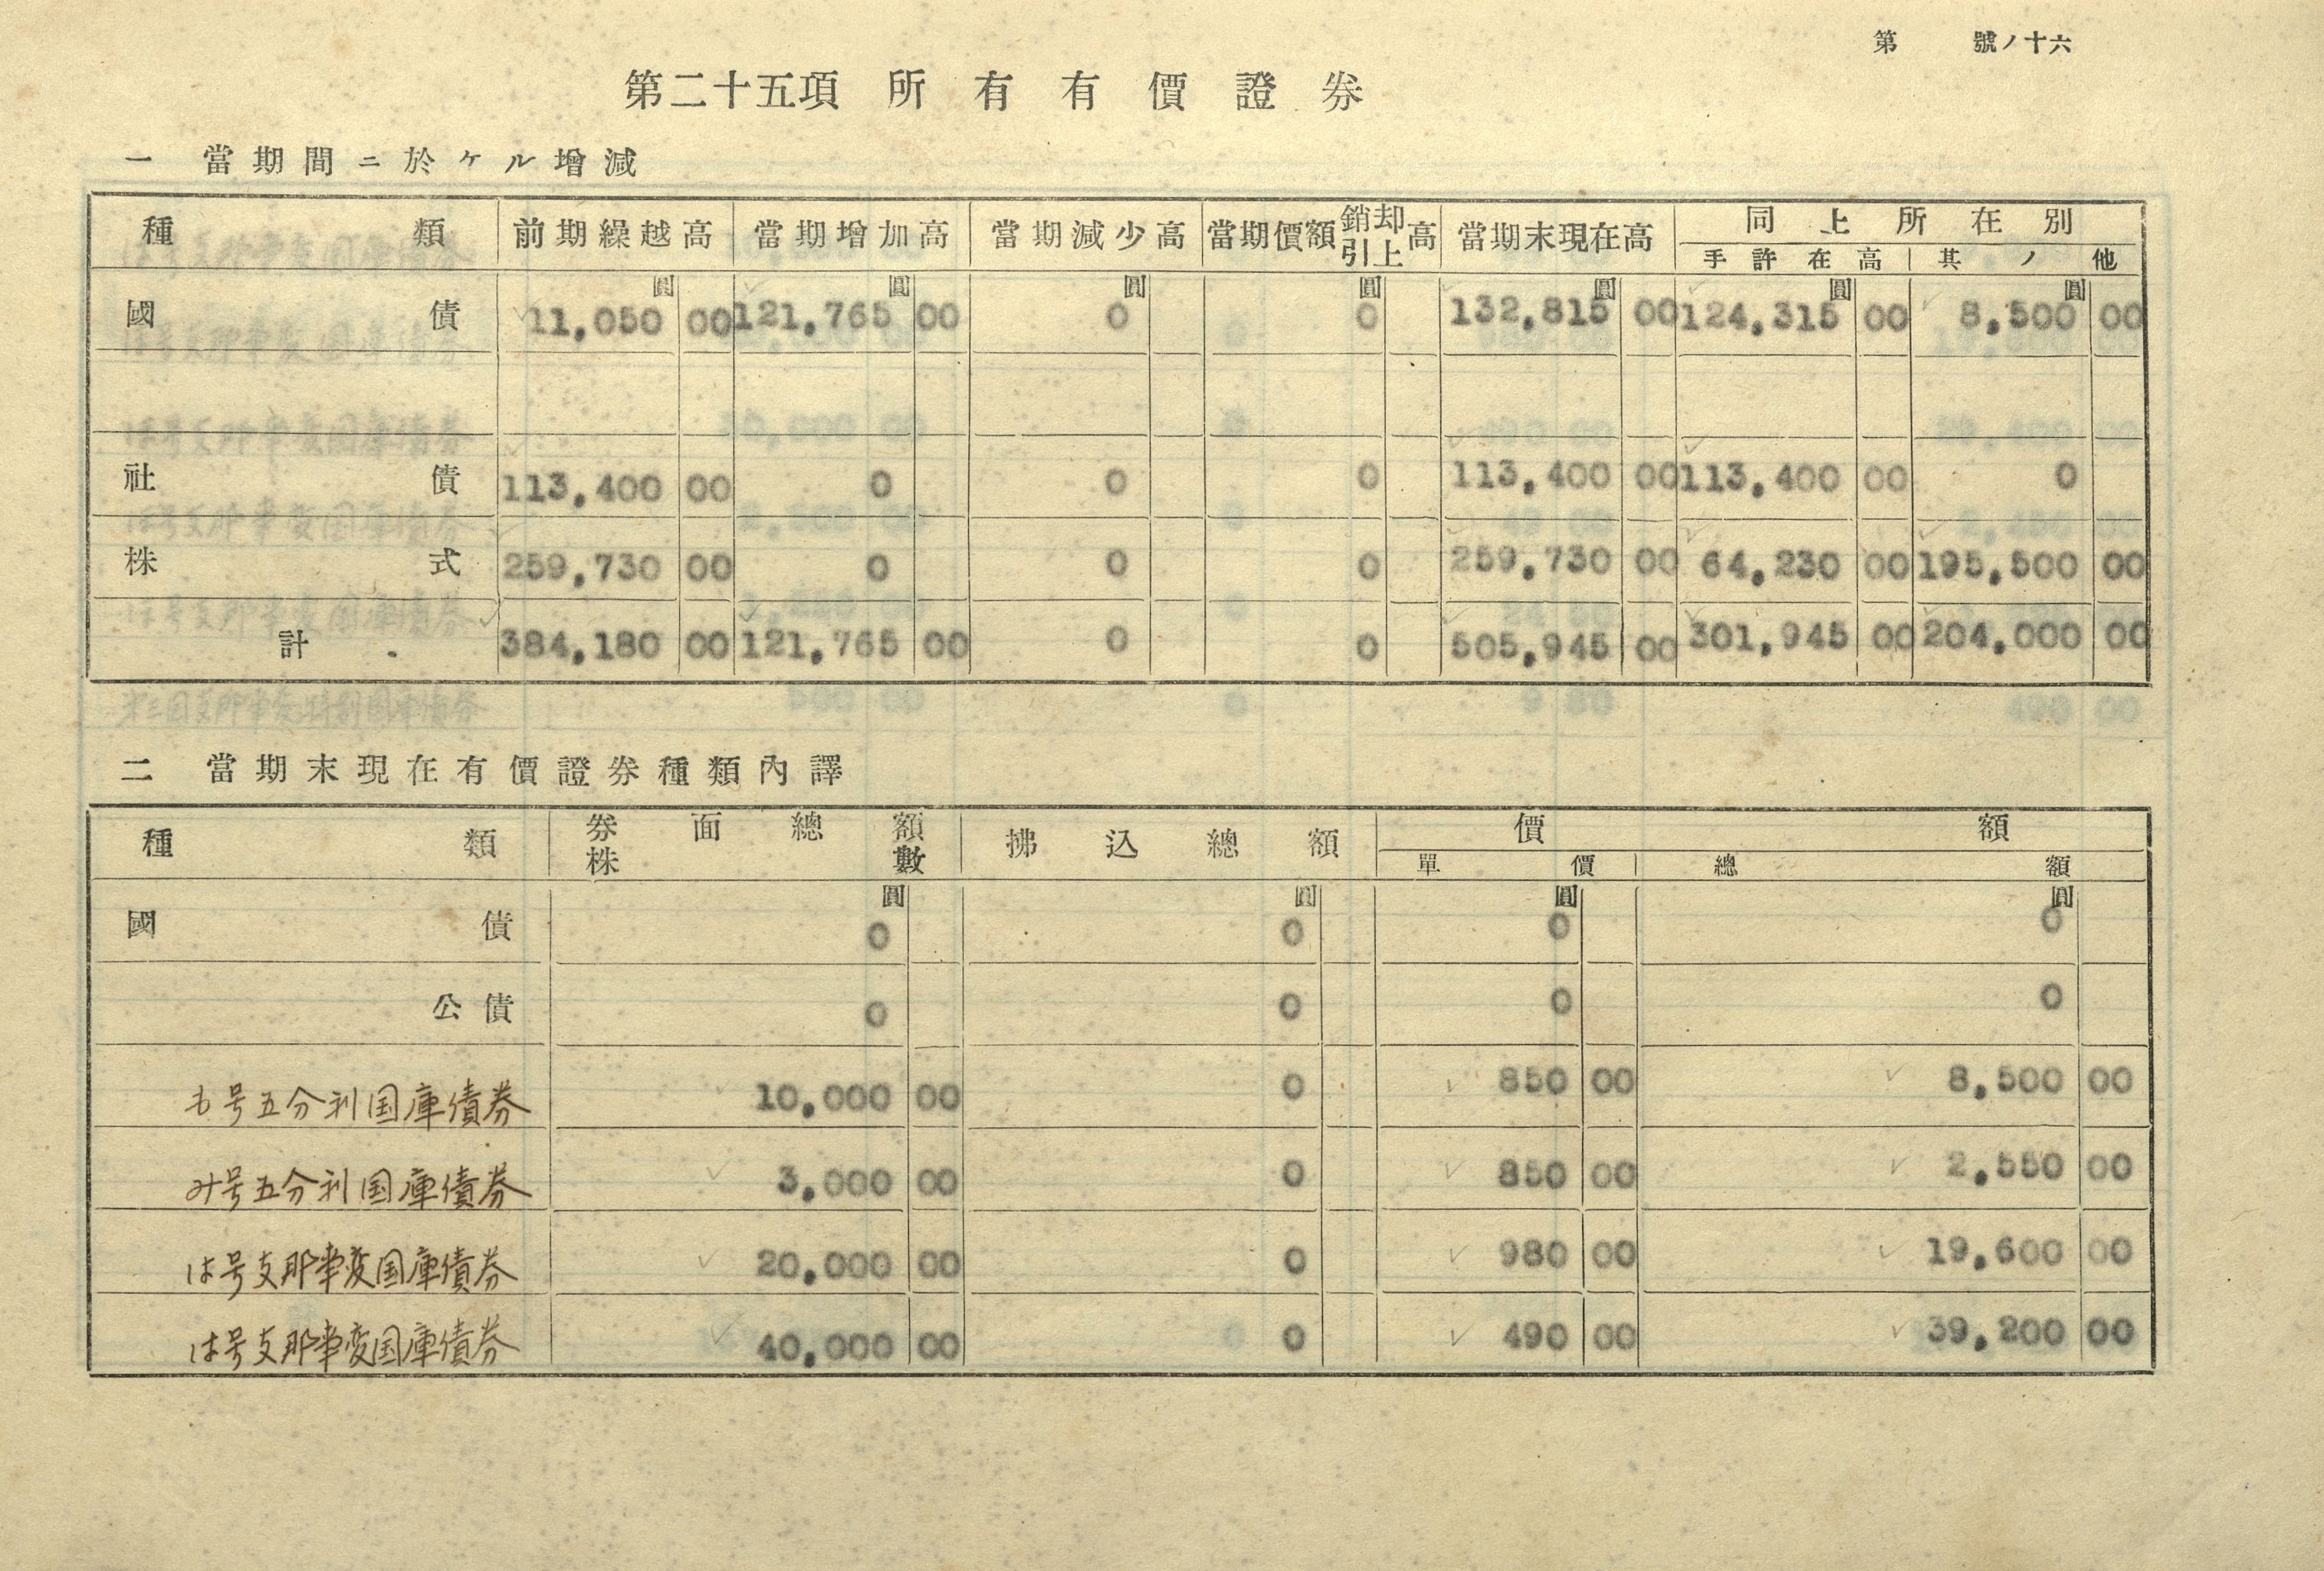 第 號ノ十六
第二十五項 所有有價證券
一 當期間ニ於ケル增減
種類 前期繰越高 當期增加高 當期減少高 當期價額銷却引上高 當期末現在高 同上所在別
手許在高 其ノ他
圓 圓 圓 圓 圓 圓 圓
國債 11,050 00 121,765 00 0 0 132,815 00 124,315 00 8,500 00
社債 113,400 00 0 0 0 113,400 00 113,400 00 0
株式 259,730 00 0 0 0 259,730 00 64,230 00 195,500 00
計 384,180 00 121,765 00 0 0 505,945 00 301,945 00 204,000 00
二 當期末現在有價證券種類內譯
種類 券面總額 株數 拂込總額 價額
單價 總額
圓 圓 圓 圓
國債 0 0 0 0
公債 0 0 0 0
も号五分利国庫債券 10,000 00 0 850 00 8,500 00
み号五分利国庫債券 3,000 00 0 850 00 2,550 00
は号支那事変国庫債券 20,000 00 0 980 00 19,600 00
は号支那事変国庫債券 40,000 00 0 490 00 39,200 00